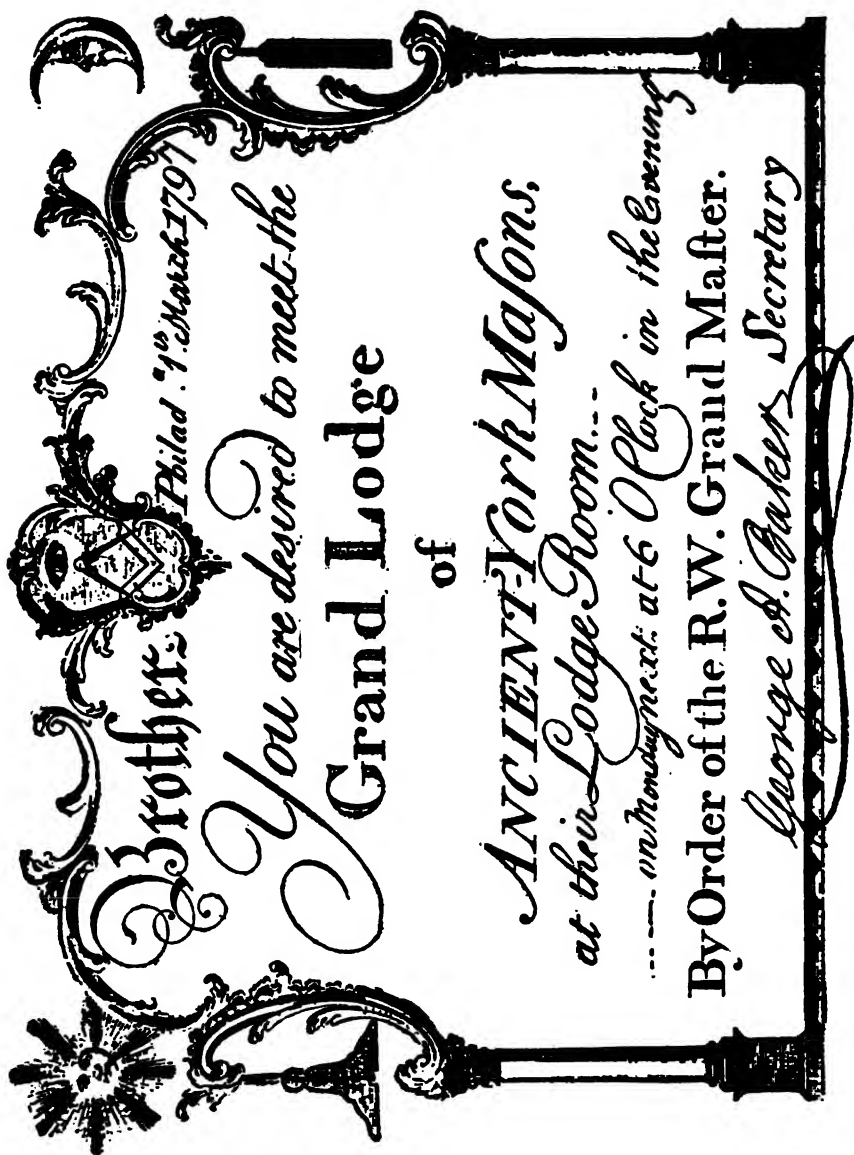 Brother:
Philad.ᵃ 1ˢᵗ. March 1797
You are desired to meet the
Grand Lodge
of
ANCIENT-York Maſons,
at their Lodge Room...
on Monday next: at 6 OClock in the Evening
By Order of the R.W. Grand Maſter.
George A. Baker Secretary